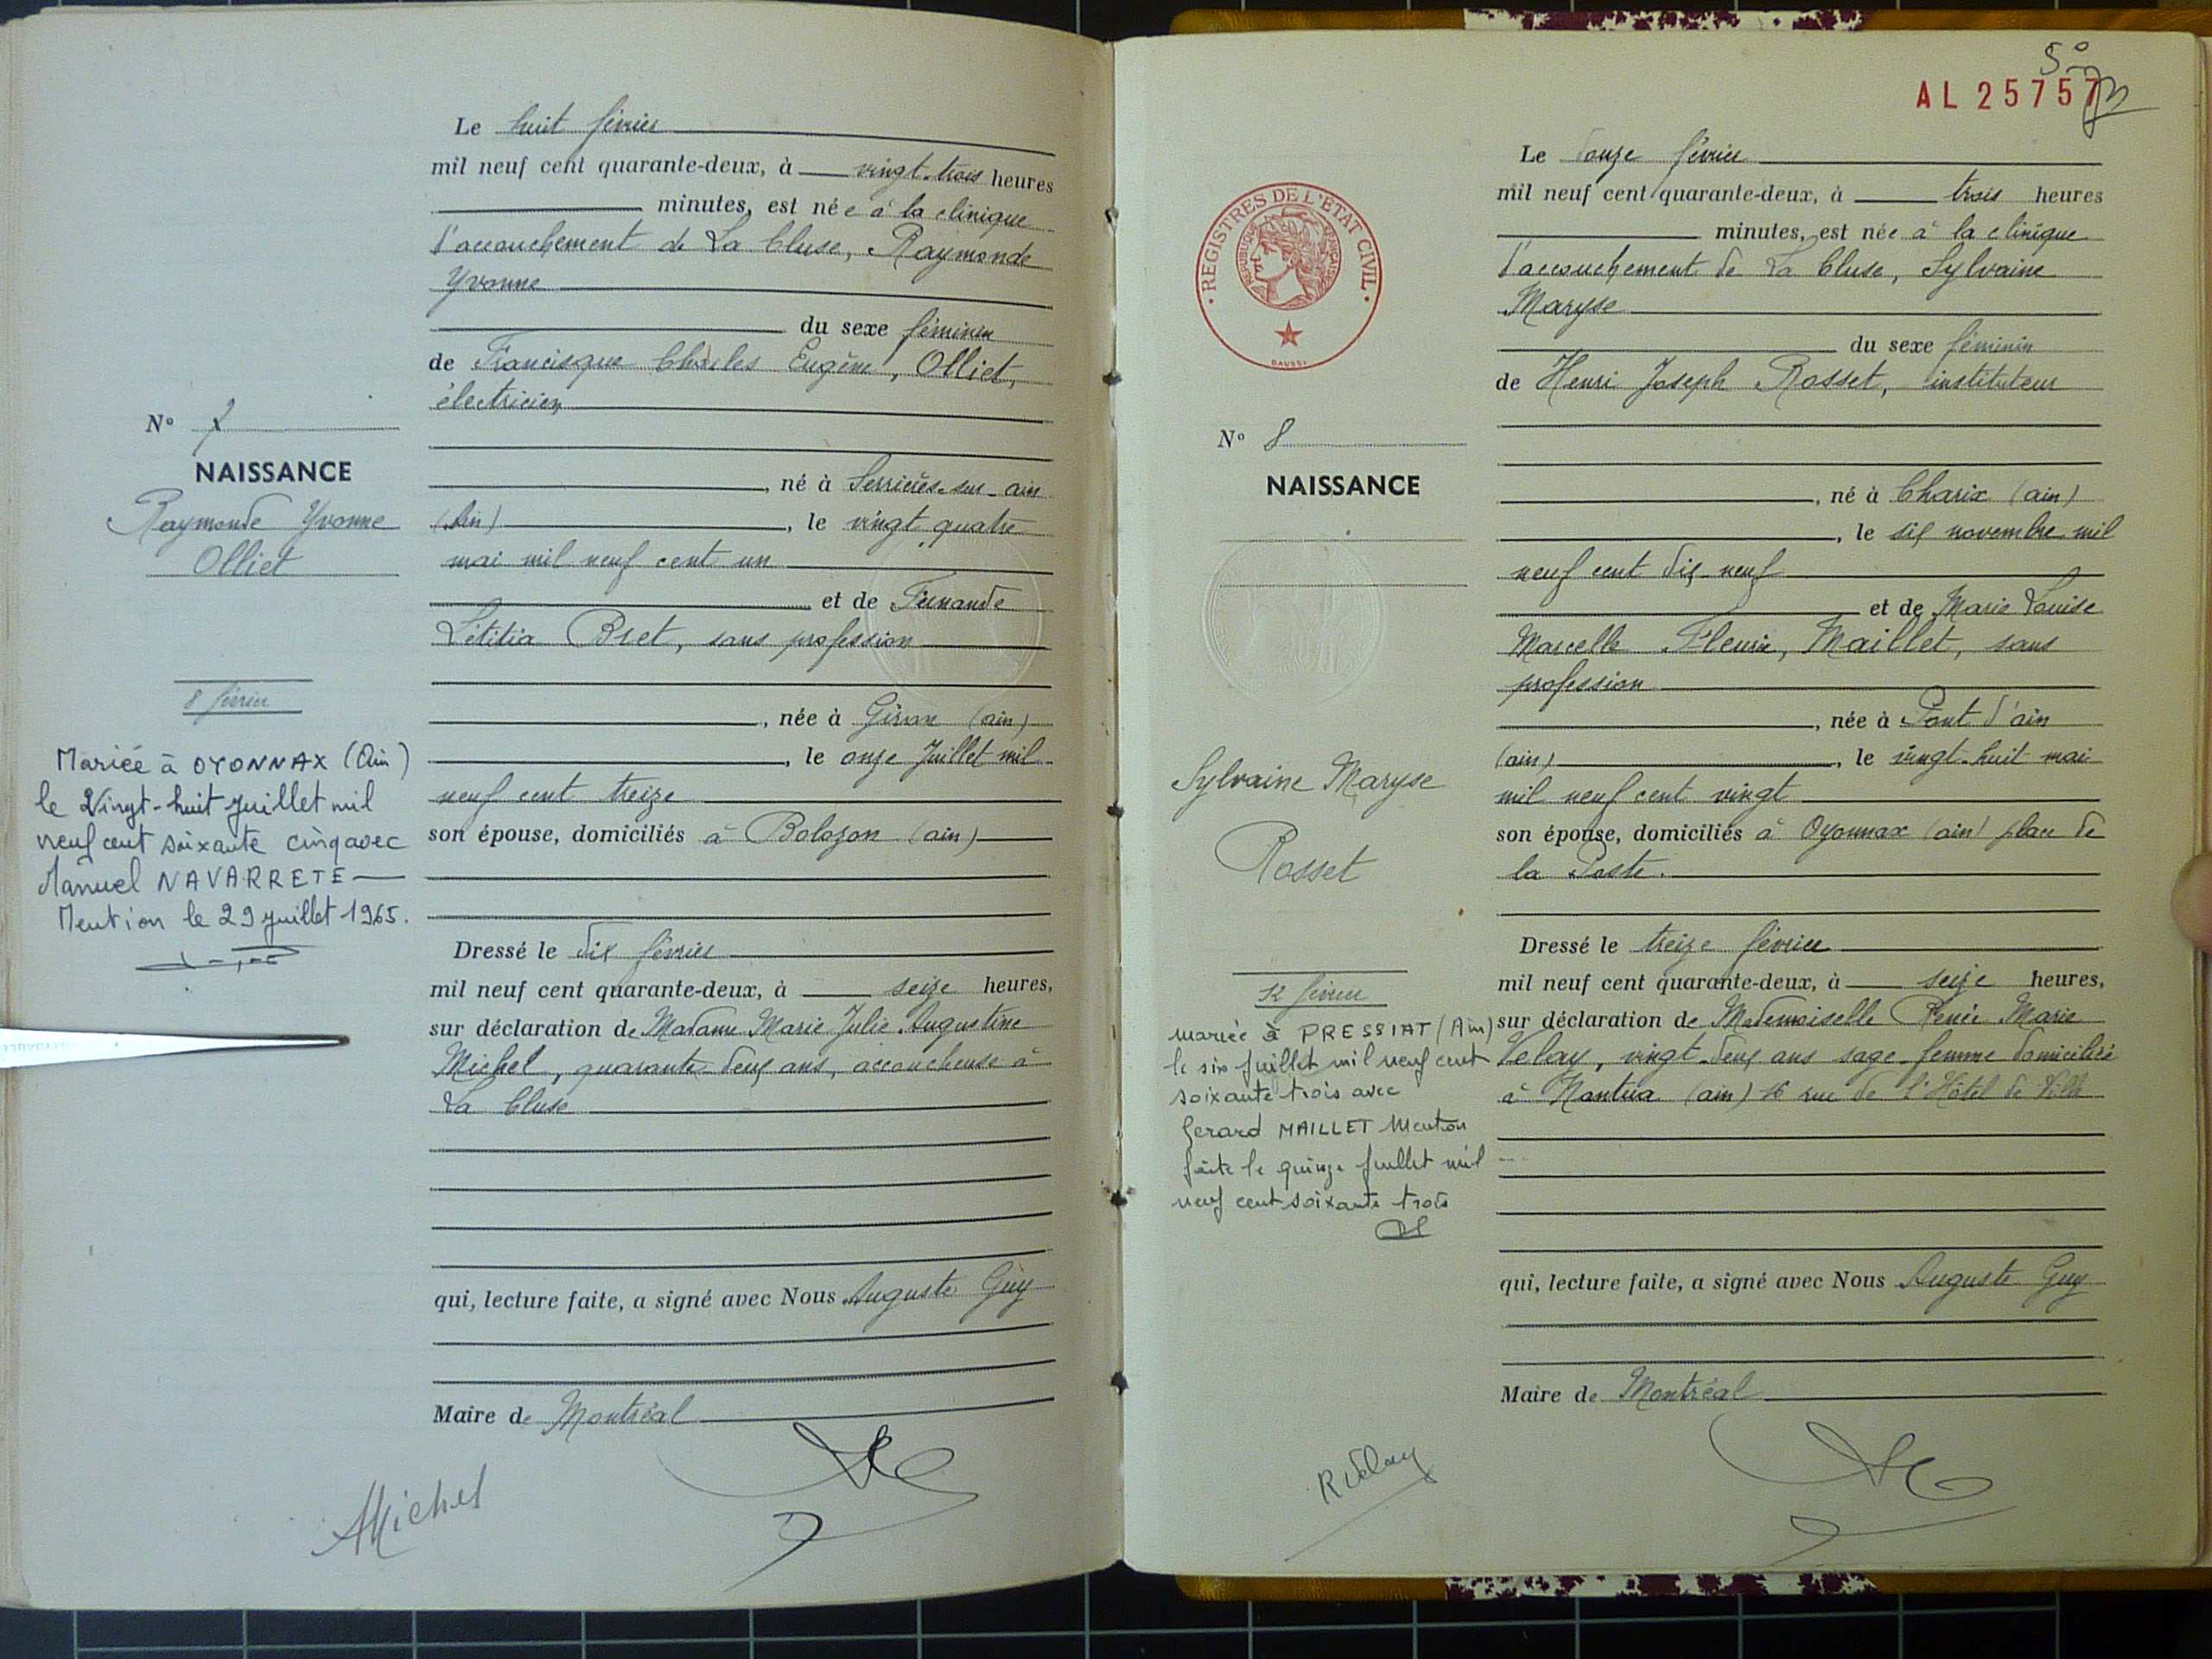 Le huit février
mil neuf cent quarante-deux, à vingt-trois heures
minutes, est née à la clinique
d'accouchement de La Cluse, Raymonde
Yvonne
du sexe féminin
de Francisque Charles Eugène, Olliet,
électricien
né à Serrières-sur-ain
(Ain), le vingt quatre
mai mil neuf cent un
et de Fernande
Létitia Bret, sans profession
, née à Giron (ain)
, le onze Juillet mil
neuf cent treize
son épouse, domiciliés à Bolozon (ain)
Dressé le dix février
mil neuf cent quarante-deux, à seize heures,
sur déclaration de Madame Marie Julie Augustine
Michel, quarante-deux ans, accoucheuse à
La Cluse
qui, lecture faite, a signé avec Nous Auguste Guy
Maire de Montréal
AMichel
N° 7
NAISSANCE
Raymonde Yvonne
Olliet
8 février
Mariée à OYONNAX (Ain)
le Vingt-huit juillet mil
neuf cent soixante cinq avec
Manuel NAVARRETE
Mention le 29 juillet 1965.
5°
AL 25757
REGISTRES DE L'ÉTAT CIVIL
REPUBLIQUE FRANÇAISE
Le douze février
mil neuf cent quarante-deux, à trois heures
minutes, est née à la clinique
d'accouchement de La Cluse, Sylvaine
Maryse
du sexe féminin
de Henri Joseph Rosset, instituteur
, né à Charix (ain)
, le six novembre mil
neuf cent dix-neuf
et de Marie Louise
Marcelle Fleurie, Maillet, sans
profession
, née à Pont d'ain
(ain), le vingt-huit mai
mil neuf cent vingt
son épouse, domiciliés à Oyonnax (ain) place de
la Poste.
Dressé le treize février
mil neuf cent quarante-deux, à seize heures,
sur déclaration de Mademoiselle Renée Marie
Velay, vingt-deux ans sage femme domiciliée
à Nantua (ain) 16 rue de l'Hôtel de Ville
qui, lecture faite, a signé avec Nous Auguste Guy
Maire de Montréal
R Velay
N° 8
NAISSANCE
Sylvaine Maryse
Rosset
12 février
mariée à PRESSIAT (Ain)
le six juillet mil neuf cent
soixante trois avec
Gerard MAILLET Mention
faite le quinze juillet mil
neuf cent soixante trois